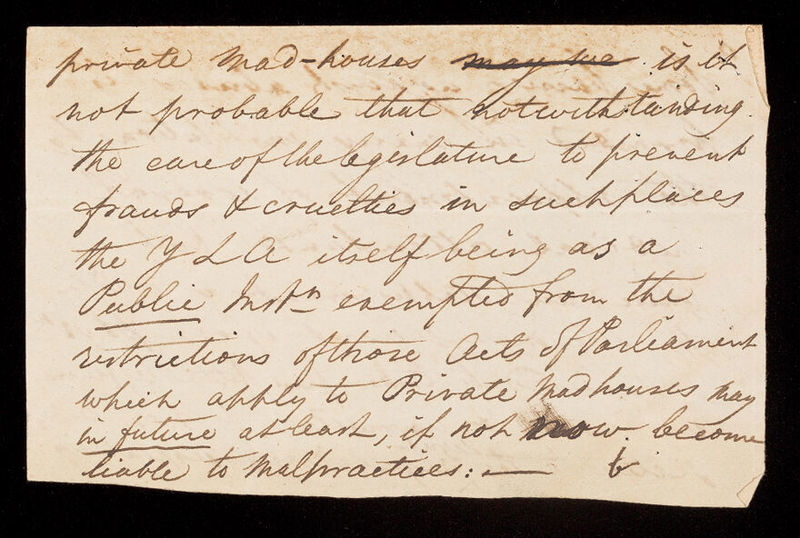 private Mad-houses may we is it
not probable that notwithstanding
the care of the legislature to prevent
frauds & cruelties in such places
the Y L A itself being as a
Public Instn exempted from the
restrictions of those Acts of Parliament
which apply to Private Madhouses may
in future at least, if not now become
liable to Malpractices: —